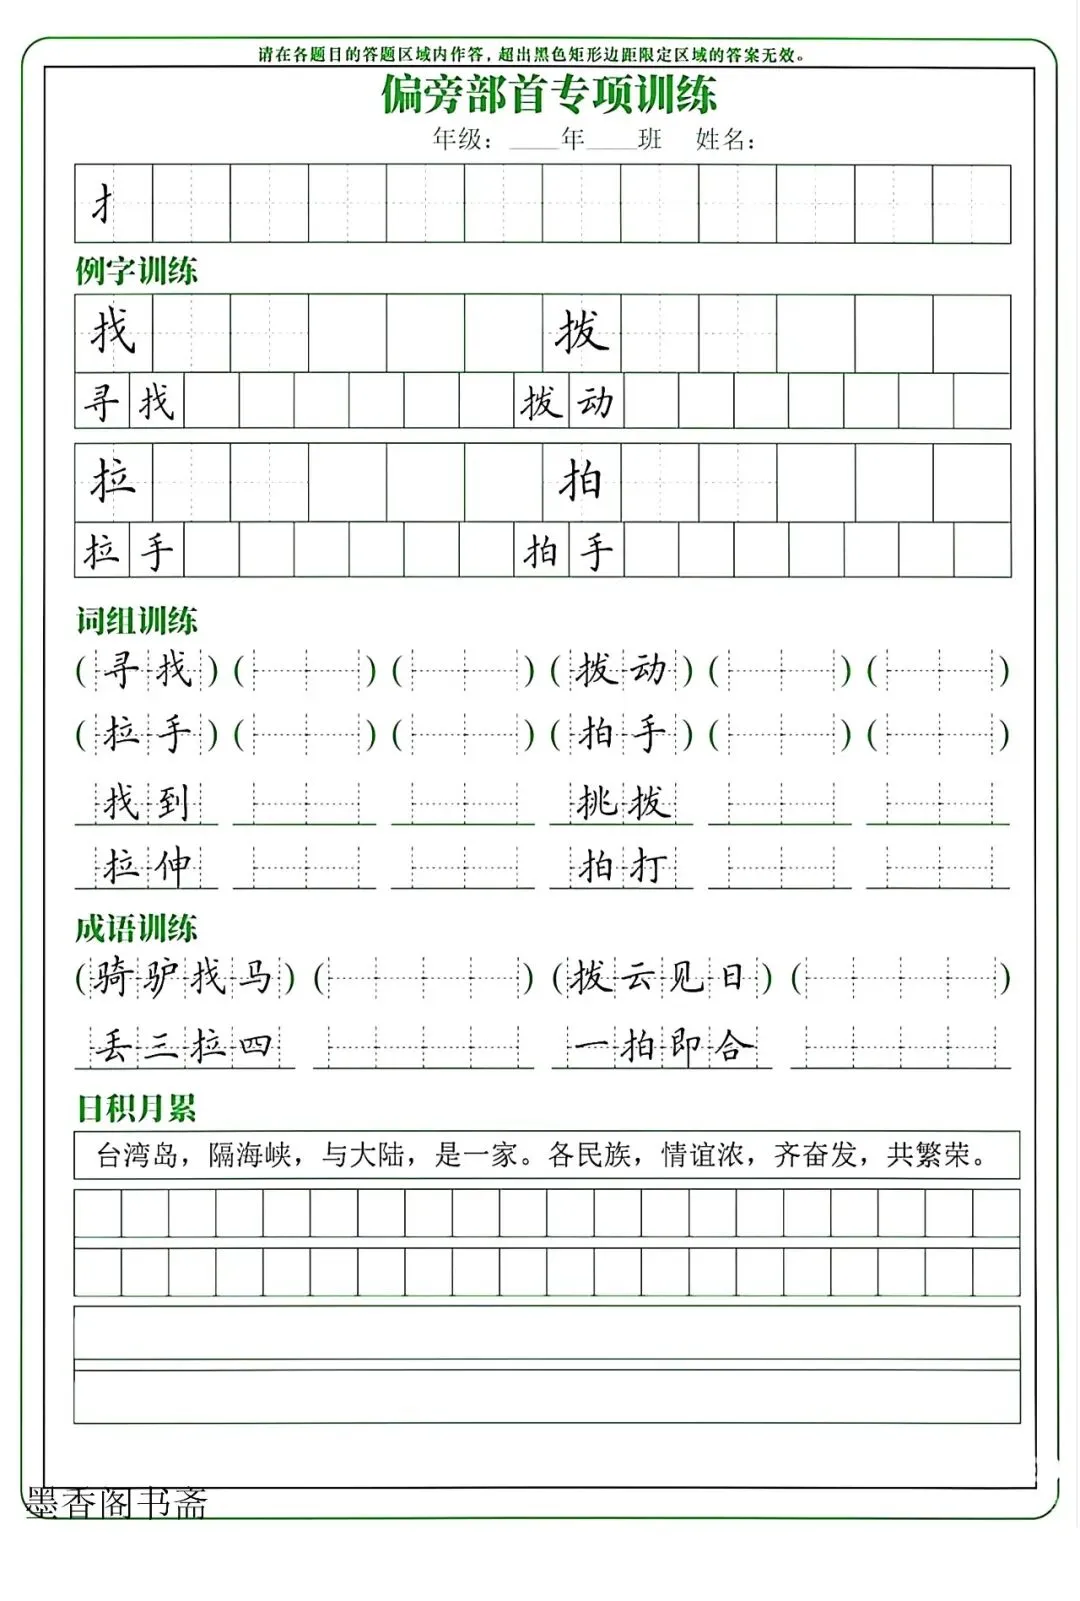 请在各题目的答题区域内作答，超出黑色矩形边距限定区域的答案无效。
偏旁部首专项训练
年级：____年____班 姓名：
扌
例字训练
找 拨
寻找 拨动
拉 拍
拉手 拍手
词组训练
(寻找) ( ) ( ) (拨动) ( ) ( )
(拉手) ( ) ( ) (拍手) ( ) ( )
找到 挑拨
拉伸 拍打
成语训练
(骑驴找马) ( ) (拨云见日) ( )
丢三拉四 一拍即合
日积月累
台湾岛，隔海峡，与大陆，是一家。各民族，情谊浓，齐奋发，共繁荣。
墨香阁书斋